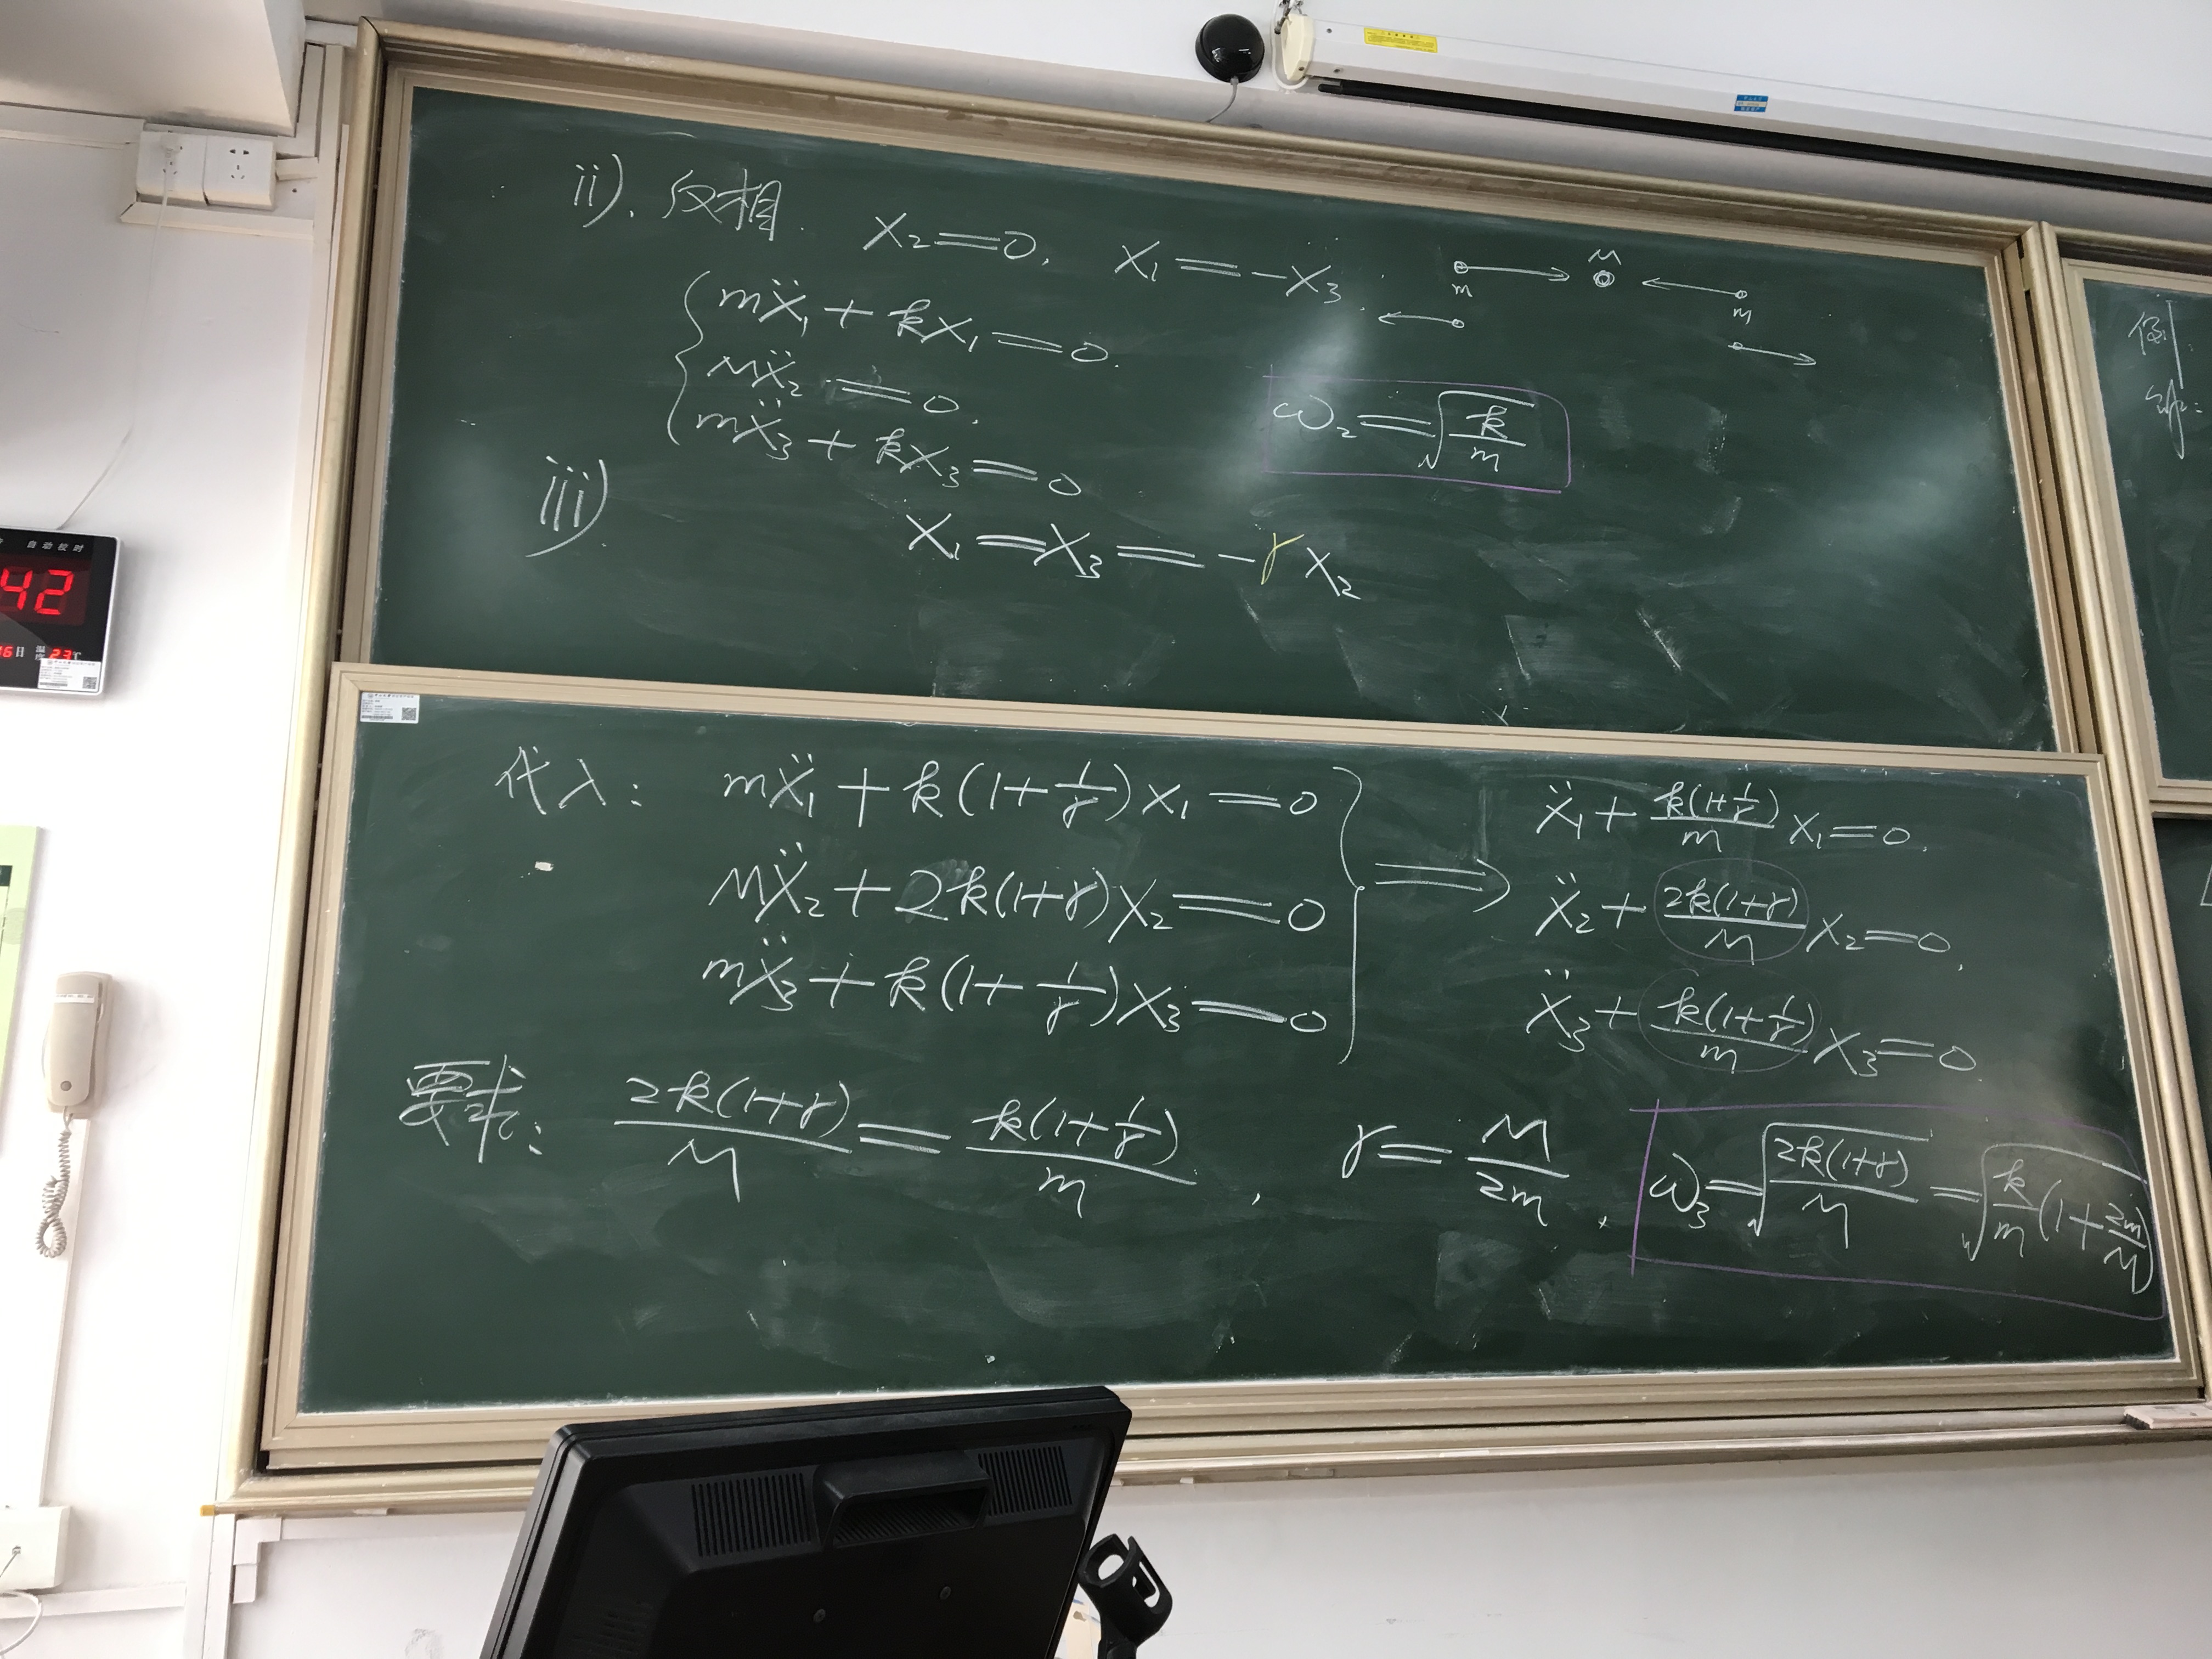 ii). 反相. X₂=0, X₁=-X₃.
m M m
mẌ₁+kX₁=0.
MẌ₂=0.
mẌ₃+kX₃=0
ω₂=√(k/m)
iii) X₁=X₃=-γX₂
代入: mẌ₁+k(1+1/γ)X₁=0
MẌ₂+2k(1+γ)X₂=0
mẌ₃+k(1+1/γ)X₃=0
⟹
Ẍ₁+k(1+1/γ)/m X₁=0.
Ẍ₂+2k(1+γ)/M X₂=0,
Ẍ₃+k(1+1/γ)/m X₃=0.
要求: 2k(1+γ)/M=k(1+1/γ)/m, γ=M/2m.
ω₃=√(2k(1+γ)/M)=√(k/m(1+2m/M))
例
解:
自动校时
42
6日 温度 23℃